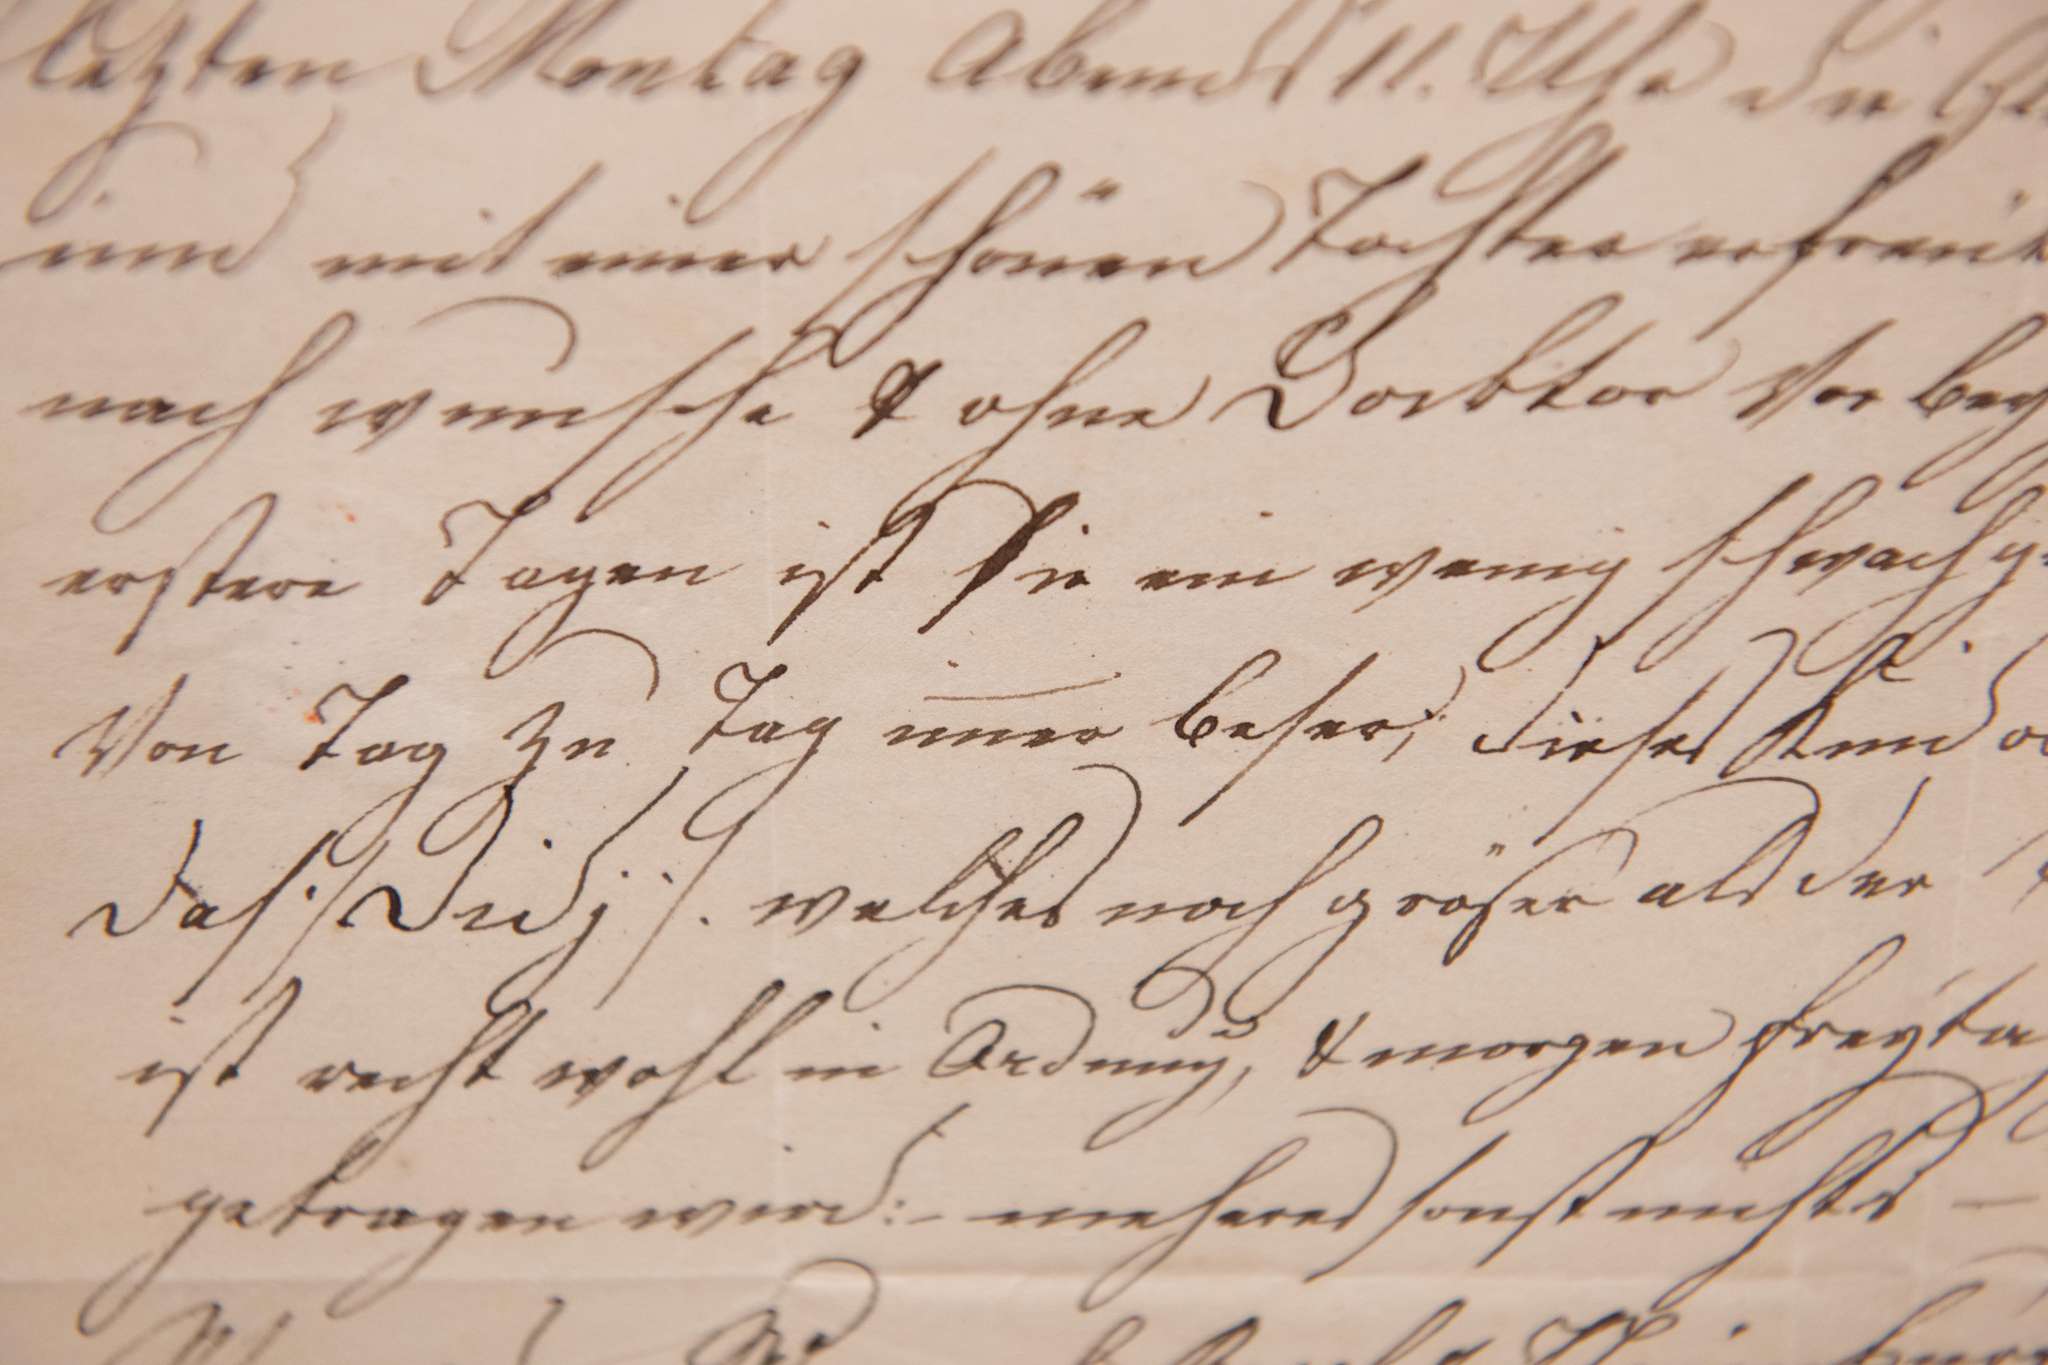 letzten Montag Abends 11. Uhr die
und mit einer schönen Tochter erfreut
nach wunsche & ohne Docktor Vorbey
erstere Tagen ist Sie ein wenig schwach
Von Tag zu Tag im̄er beßer; dieses Kind
daß welches noch größer als der
ist recht wohl in Ordnung, & morgen Freytag
getragen wird:- meheres sonst nichts —